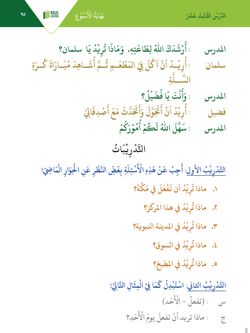 الدَّرْسُ الثَّالِثَ عَشَرَ
نِهَايَةُ الْأُسْبُوعِ
٩٥
المدرس : أَرْشَدَكَ اللهُ لِطَاعَتِهِ، وَمَاذَا تُرِيدُ يَا سَلْمَان؟
سلمان : أُرِيـدُ أَنْ آكُلَ فِي الْمَطْعَـمِ ثُـمَّ أُشَـاهِدَ مُبَـارَاةَ كُـرَةِ
السَّـلَّةِ
المدرس : وَأَنْتَ يَا فُضَيْلُ؟
فضيل : أُرِيْدُ أَنْ أَتَجَوَّلَ وَأَتَحَدَّثَ مَعَ أَصْدِقَائِي
المدرس : سَـهَّلَ اللهُ لَكُـمْ أُمُورَكُمْ
التَّدْرِيْبَاتُ
التَّدْرِيْبُ الأَوَّلُ: أَجِبْ عَنْ هَذِهِ الْأَسْئِلَةِ بِغَضِّ النَّظَرِ عَنِ الْحِوَارِ الْمَاضِيْ:
١. ماذا تُرِيْدُ أن تَفْعَلَ فِي مَكَّةَ؟
٢. ماذا تُرِيْدُ في هذا المركز؟
٣. ماذا تُرِيْدُ في المدينة النبوية؟
٤. ماذا تُرِيْدُ في السوق؟
٥. ماذا تُرِيْدُ في المطبخ؟
التَّدْرِيْبُ الثَّانِي: اسْتَبْدِلْ كَمَا فِي الْمِثَالِ التَّالِيْ:
س : (تفعلُ – الْأَحَد)
ج : ماذا تريد أنْ تفعلَ يومَ الْأَحَدِ؟